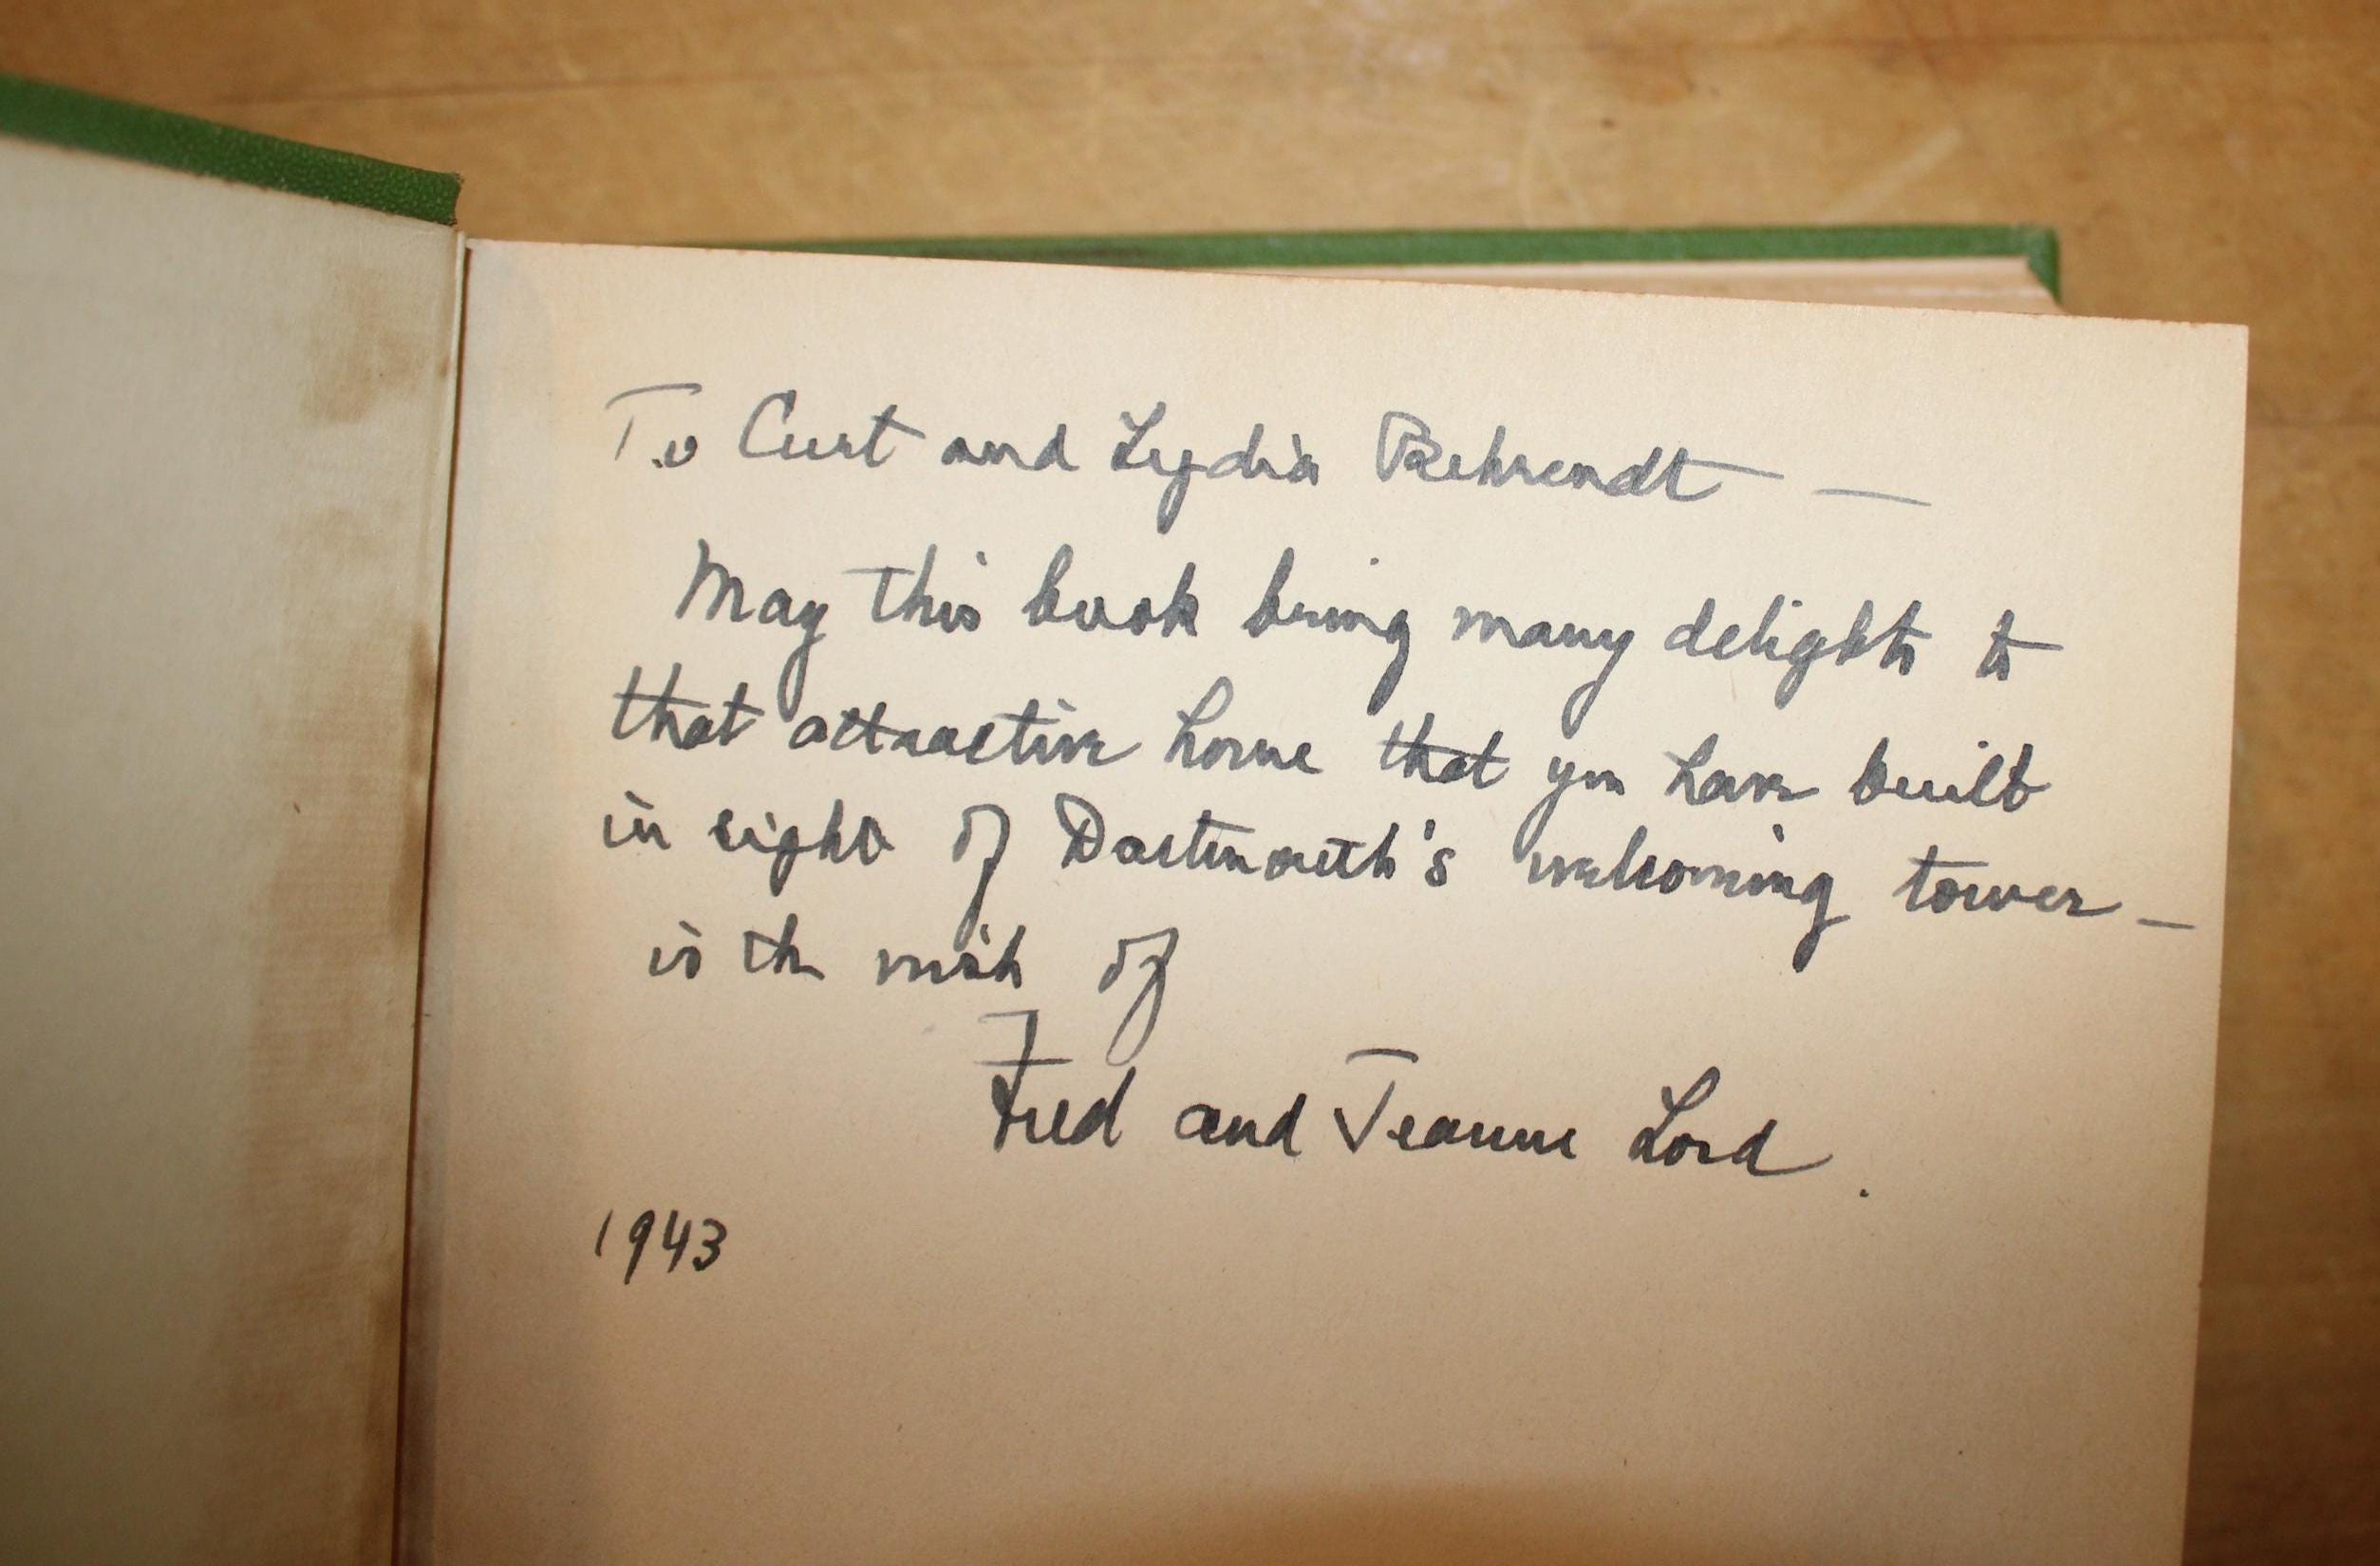 To Curt and Lydia Behrendt —
May this book bring many delights to
that attractive home that you have built
in sight of Dartmouth's welcoming tower —
is the wish of
Fred and Jeanne Lord.
1943